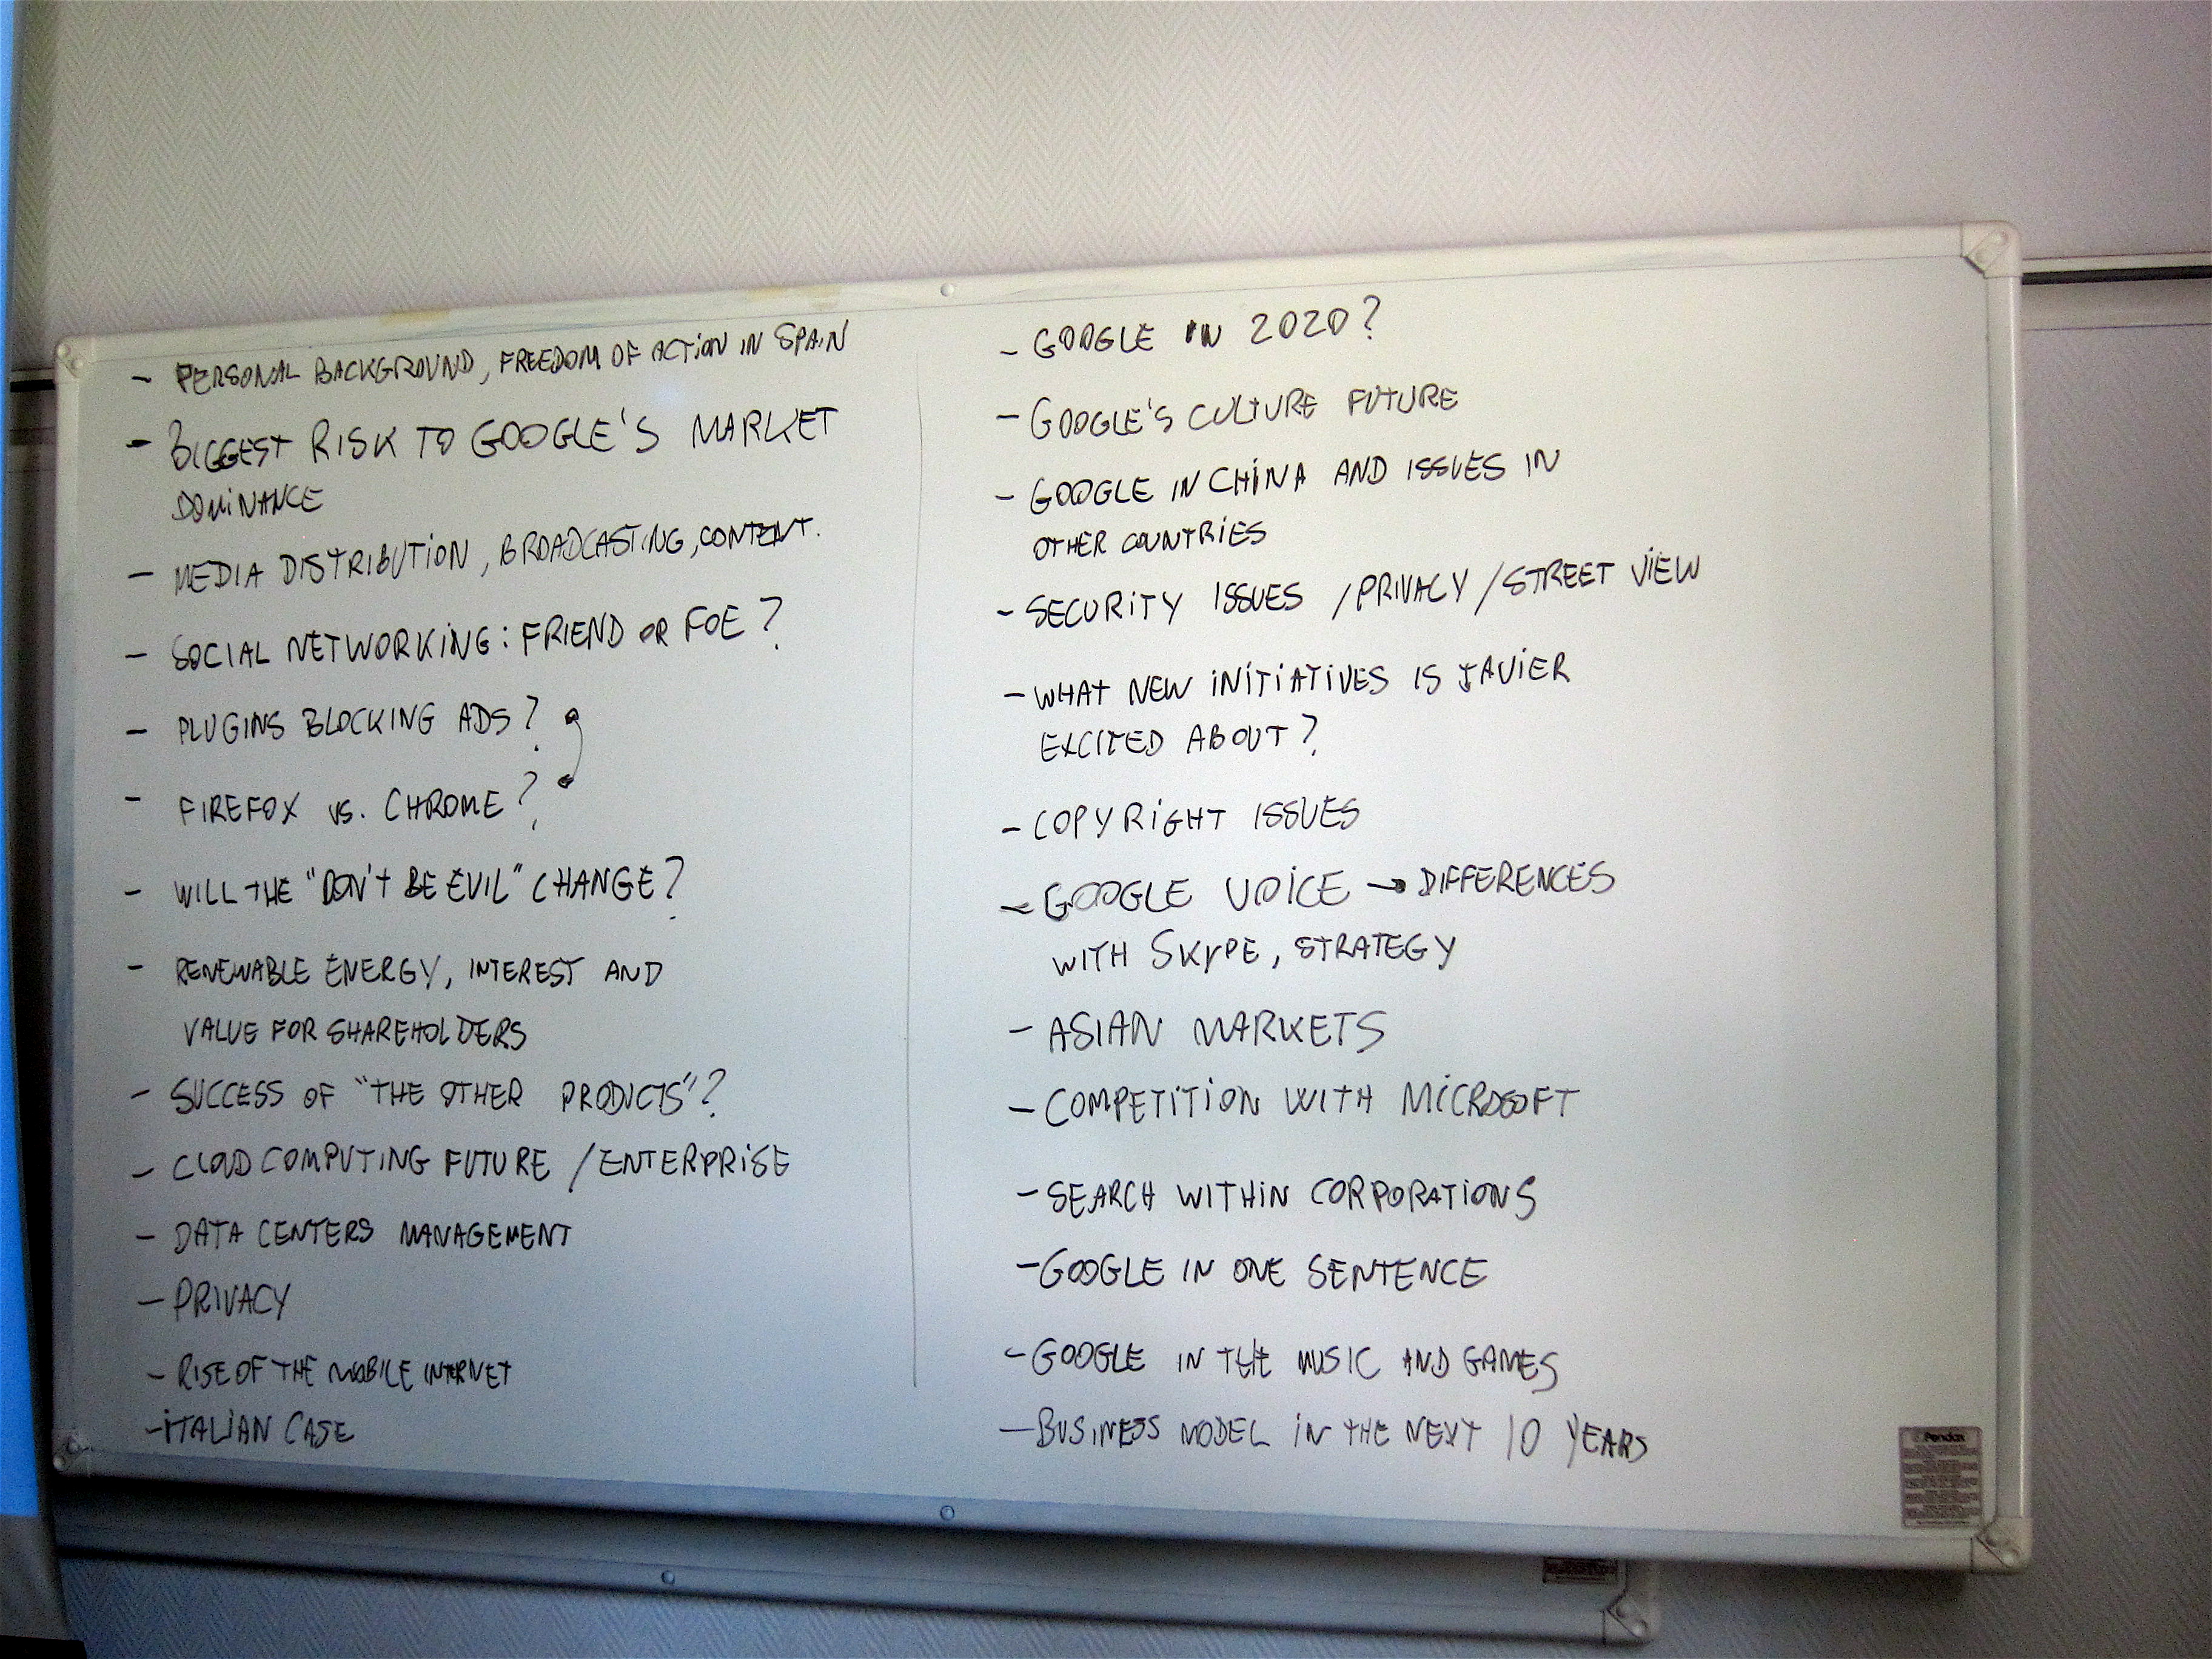 - PERSONAL BACKGROUND, FREEDOM OF ACTION IN SPAIN
- BIGGEST RISK TO GOOGLE'S MARKET
DOMINANCE
- MEDIA DISTRIBUTION, BROADCASTING, CONTENT.
- SOCIAL NETWORKING: FRIEND OR FOE?
- PLUGINS BLOCKING ADS?
- FIREFOX VS. CHROME?
- WILL THE "DON'T BE EVIL" CHANGE?
- RENEWABLE ENERGY, INTEREST AND
VALUE FOR SHAREHOLDERS
- SUCCESS OF "THE OTHER PRODUCTS"?
- CLOUD COMPUTING FUTURE / ENTERPRISE
- DATA CENTERS MANAGEMENT
- PRIVACY
- RISE OF THE MOBILE INTERNET
- ITALIAN CASE
- GOOGLE IN 2020?
- GOOGLE'S CULTURE FUTURE
- GOOGLE IN CHINA AND ISSUES IN
OTHER COUNTRIES
- SECURITY ISSUES / PRIVACY / STREET VIEW
- WHAT NEW INITIATIVES IS JAVIER
EXCITED ABOUT?
- COPYRIGHT ISSUES
- GOOGLE VOICE → DIFFERENCES
WITH SKYPE, STRATEGY
- ASIAN MARKETS
- COMPETITION WITH MICROSOFT
- SEARCH WITHIN CORPORATIONS
- GOOGLE IN ONE SENTENCE
- GOOGLE IN THE MUSIC AND GAMES
- BUSINESS MODEL IN THE NEXT 10 YEARS
Pendax